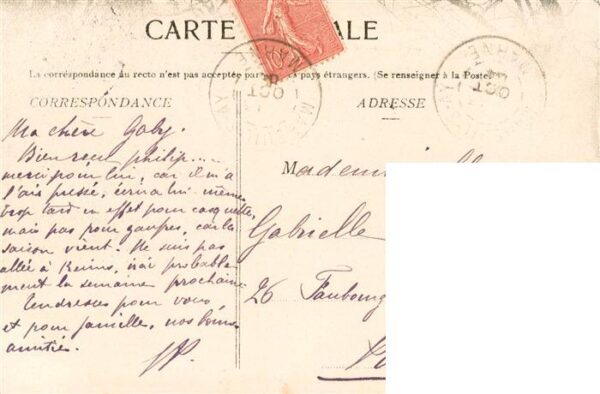 CARTE ALE
La correspondance au recto n'est pas acceptée par pays étrangers. (Se renseigner à la Poste
CORRESPONDANCE
ADRESSE
Ma chère Gaby.
Bien reçu philip....
merci pour lui, car il m'a
l'air pressé, écrira lui-même
trop tard en effet pour casquette,
mais pas pour gaufres, car la
saison vient. Ne suis pas
allée à Reims, irai probable
ment la semaine prochaine
Tendresses pour vous,
et pour famille, nos bonnes
amitiés.
Mademoi
Gabrielle
26 Faubourg